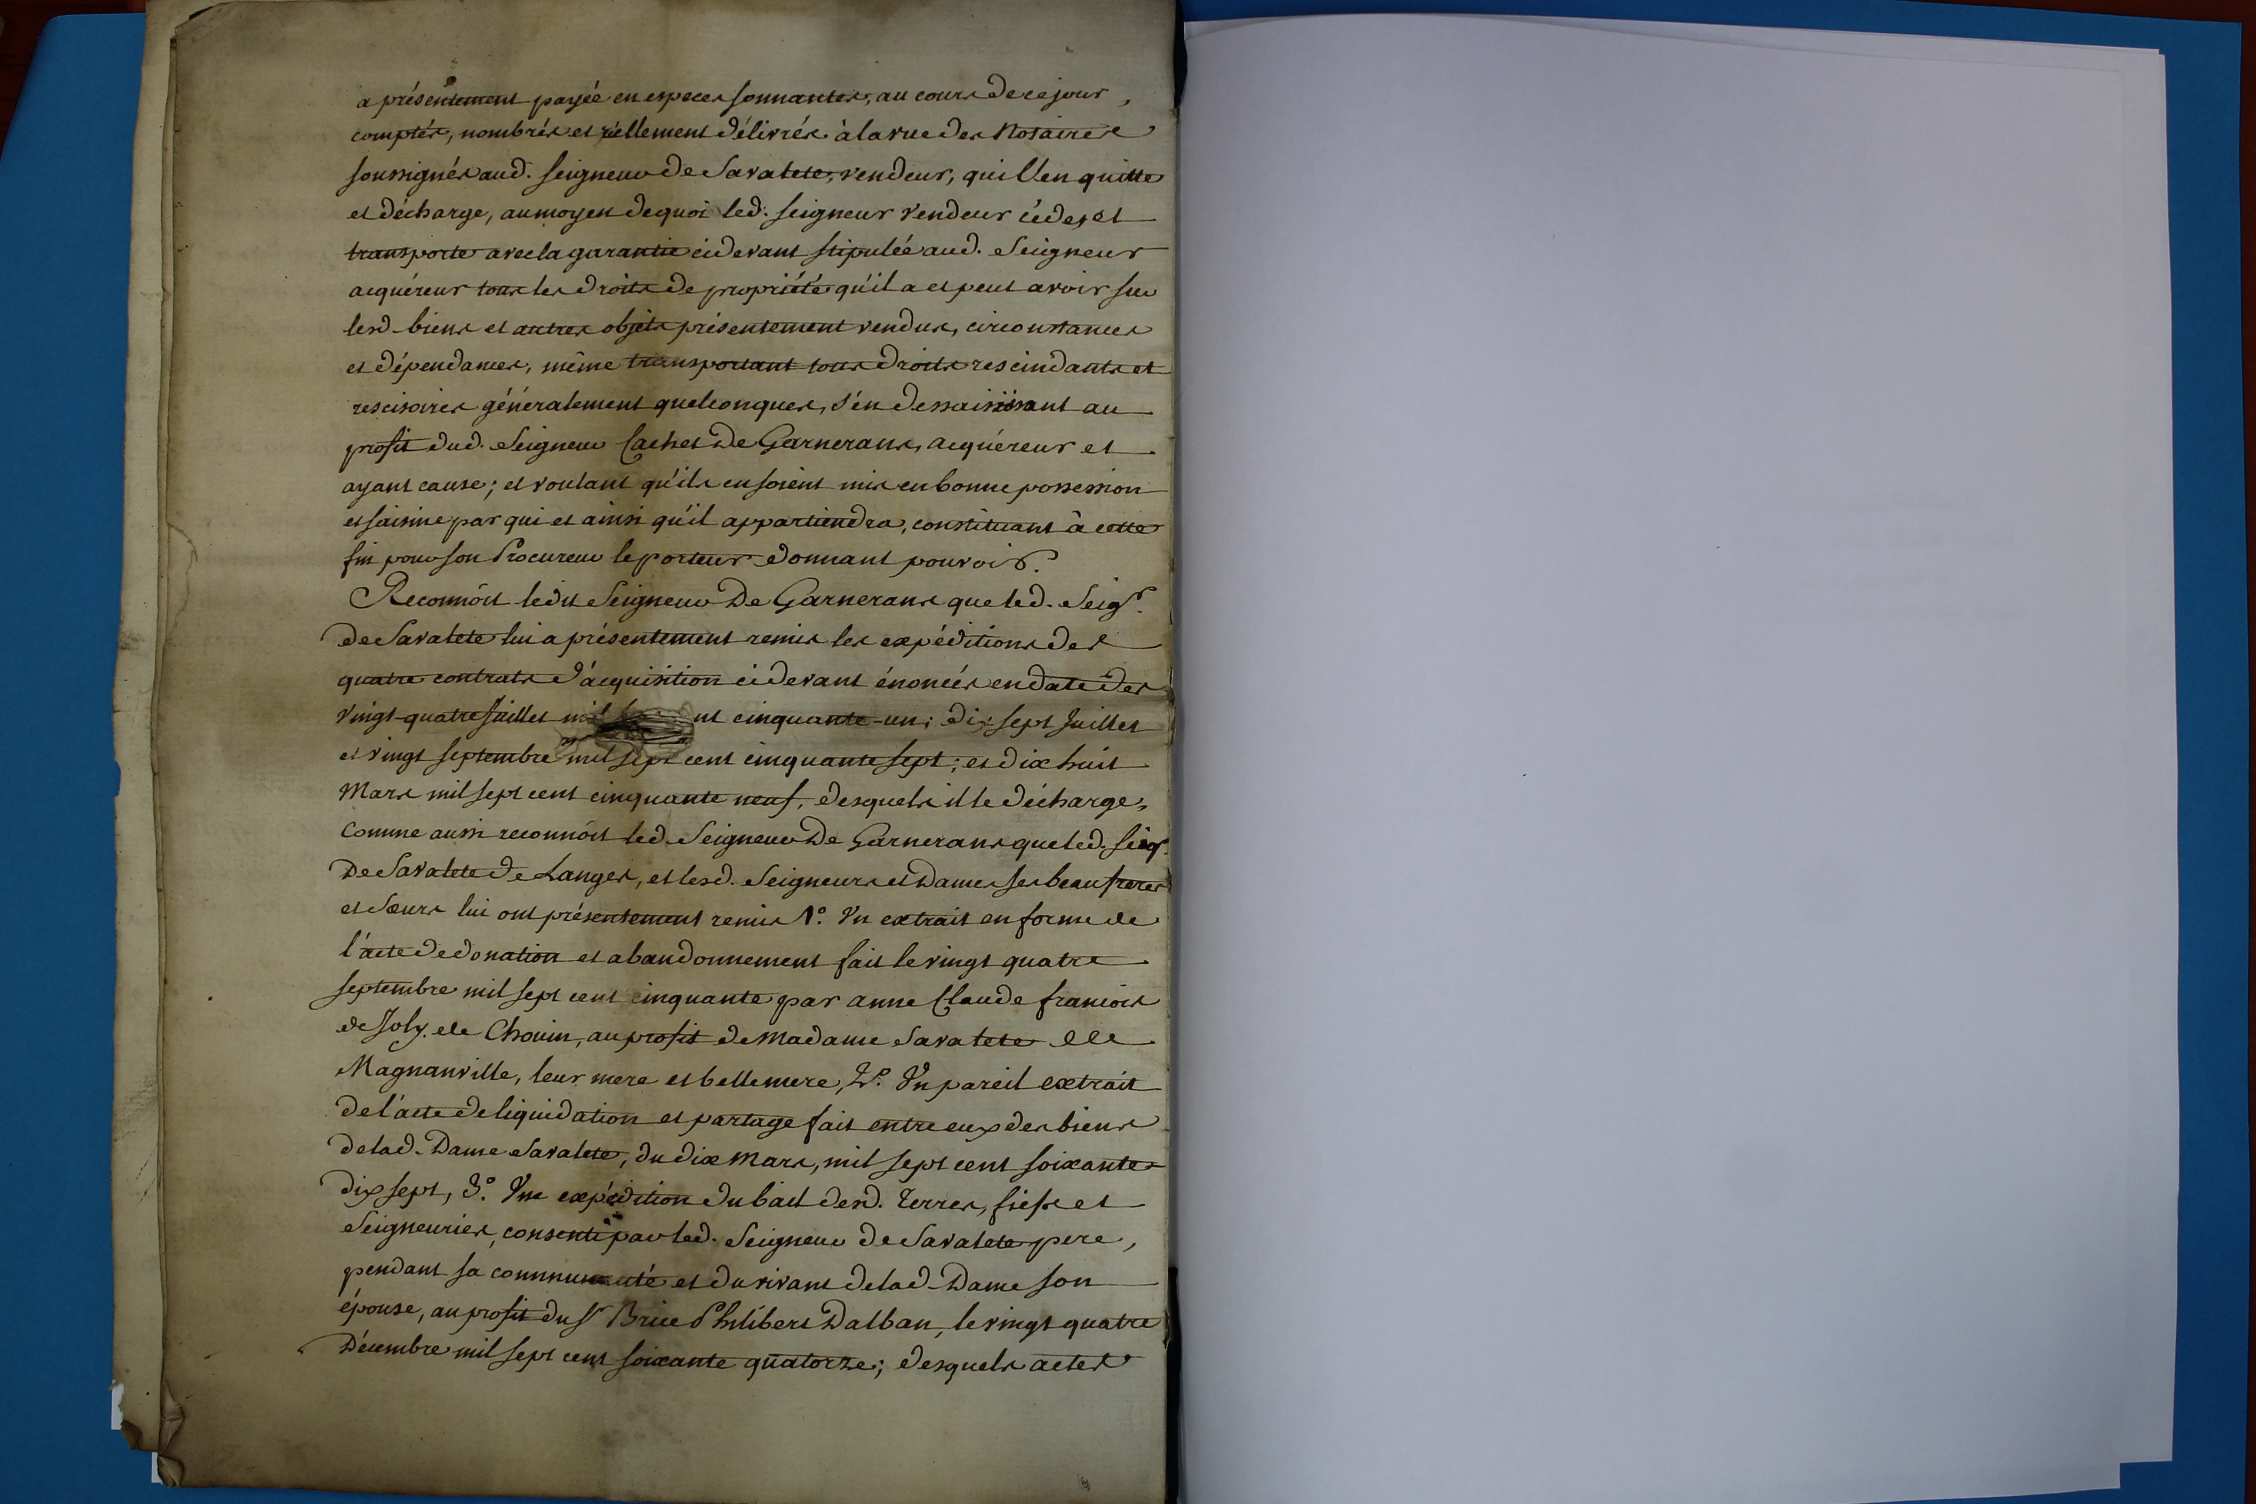 a présentement payée en especes sonnantes, au cours de ce jour,
comptés, nombrés et réellement délivrés à la vue des Notaires
soussignés aud. Seigneur de Savalete, vendeur, qui l'en quitte
et décharge, au moyen de quoi led. seigneur vendeur céde, et
transporte avec la garantie cidevant stipulée aud. Seigneur
acquéreur tous les droits de propriété qu'il a et peut avoir sur
lesd. biens et autres objets présentement vendus, circonstances
et dépendances, même transportant tous droits rescindants et
rescisoires généralement quelconques, s'en dessaisissant au
profit dud. Seigneur Cachet De Garnerans, acquéreur et
ayant cause; et voulant qu'ils en soient mis en bonne possession
et saisine par qui et ainsi qu'il appartiendra, constituant à cette
fin pour son Procureur le porteur donnant pouvoir.
Reconnôit ledit Seigneur De Garnerans que led. Seigr.
de Savalete lui a présentement remis les expéditions des
quatre contrats d'acquisition cidevant énoncés en date des
vingt-quatre Juillet mil nt cinquante-un; dix sept Juillet
et vingt septembre mil sept cent cinquante sept; et dix huit
Mars mil sept cent cinquante neuf, desquels il le décharge,
Comme aussi reconnôit led. Seigneur De Garnerans que led. Seigr.
De Savalete de Langes, et lesd. Seigneurs et Dames ses beaufreres
et Sœurs lui ont présentement remis 1°. Un extrait en forme de
l'acte de donation et abandonnement fait le vingt quatre
septembre mil sept cent cinquante par anne Claude francois
de Joly de Chouin, au profit de Madame Savalete de
Magnanville, leur mere et bellemere, 2°. Un pareil extrait
de l'acte de liquidation et partage fait entre eux des biens
de lad. Dame Savalete, du dix Mars, mil sept cent soixante
dix sept, 3°. Une expédition du bail desd. Terres, fiefs et
Seigneuries, consenti par led. Seigneur de Savalete pere,
pendant sa communauté et du vivant de lad. Dame son
épouse, au profit du Sr Brice Philibert Dalban, le vingt quatre
Décembre mil sept cent soixante quatorze; desquels actes